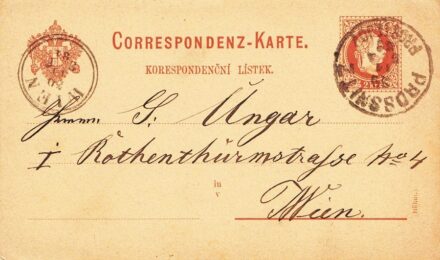 CORRESPONDENZ-KARTE.
KORESPONDENČNÍ LÍSTEK.
WIEN
PROSSNITZ
Herrn S. Ungar
I Rothenthurmstrasse No 4
in
v
Wien.
(Böhm.)